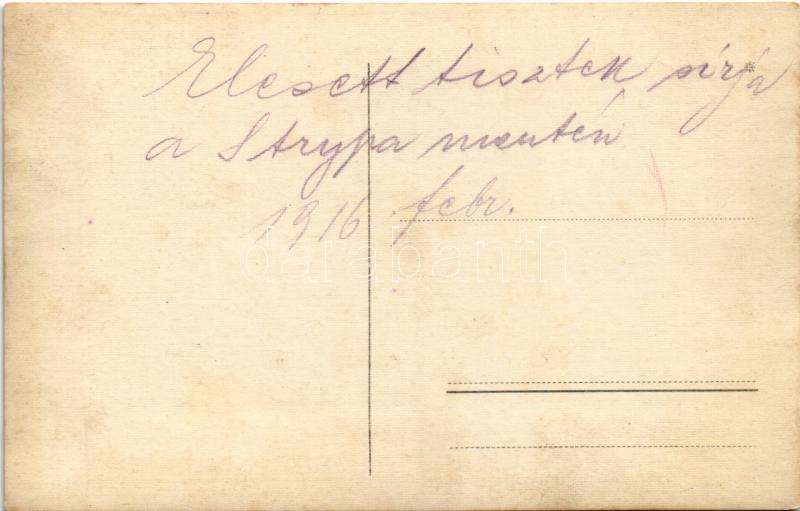 Elesett tisztek sírja
a Strypa mentén
1916 febr.
darabanth